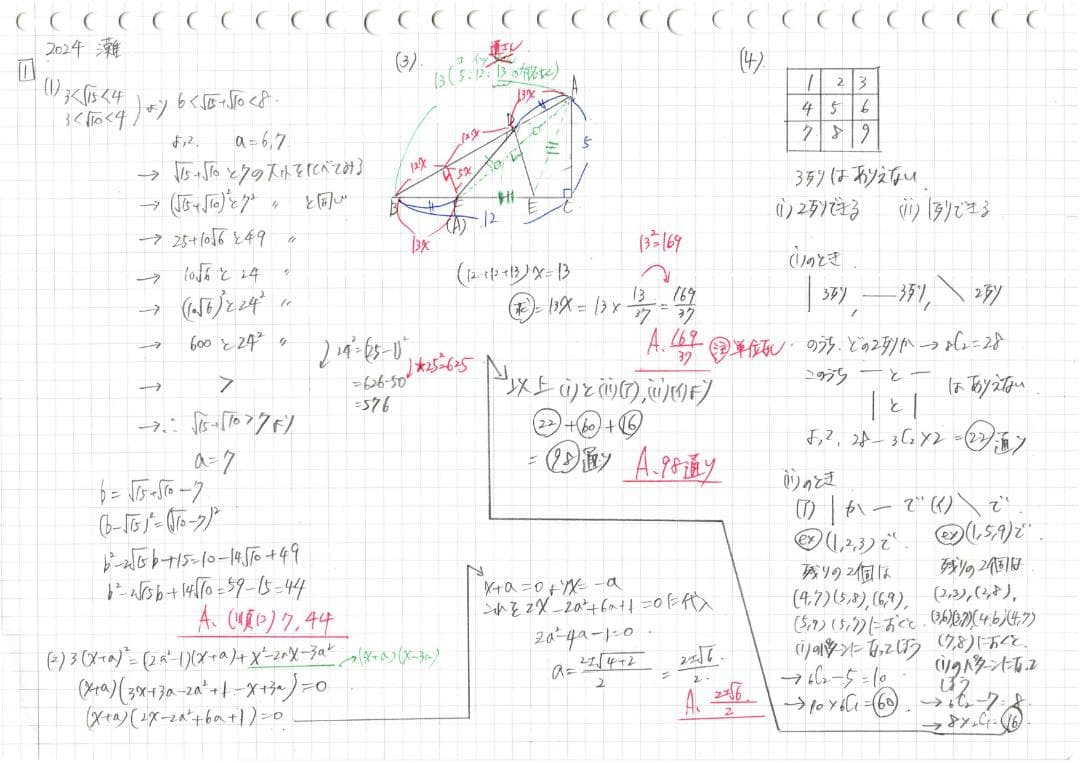 2024 灘
1
(1) 3<√15<4
3<√10<4
より 6<√15+√10<8.
よって a=6,7
→ √15+√10 と7の大小を比べてみる
→ (√15+√10)²と7² 〃 と同じ
→ 25+10√6と49 〃
→ 10√6と24 〃
→ (10√6)²と24² 〃
→ 600と24² 〃
24²=(25-1)²
=626-50
=576
★25²=625
→ >
→∴ √15+√10>7より
a=7
b=√15+√10-7
(b-√15)²=(√10-7)²
b²-2√15b+15=10-14√10+49
b²-2√15b+14√10=59-15=44
A、(順に)7,44
(2) 3(x+a)²=(2a²-1)(x+a)+x²-2ax-3a²
→(x+a)(x-3a)
(x+a)(3x+3a-2a²+1-x+3a)=0
(x+a)(2x-2a²+6a+1)=0
x+a=0よりx=-a
これを2x-2a²+6a+1=0に代入
2a²-4a-1=0
a=2±√4+2/2=2±√6/2
A、2±√6/2
(3).
13(5:12:13の有名な)
A
13x
D
12x
12x
5x
5
B
F
(A)
E
C
12
13x
13²=169
(12+12+13)x=13
求=13x=13×13/37=169/37
A、169/37
注 単位なし
以上(i)と(ii)(ア),(ii)(イ)より
22+60+16
=98通り
A、98通り
(4)
1 2 3
4 5 6
7 8 9
3列はありえない
(i)2列できる (ii)1列できる
(i)のとき
| 3列, ― 3列, \ 2列
のうち、どの2列か→8C2=28
このうち ― と ―
| と |
はありえない
よって、28-3C2×2=22通り
(ii)のとき
(ア) | か ― で
ex (1,2,3)で
残りの2個は
(4,7)(5,8),(6,9),
(5,9)(5,7)におくと
(i)のパターンになってしまう
→6C2-5=10
→10×6C1=60
(イ) \ で
ex (1,5,9)で
残りの2個は
(2,3),(2,8),
(3,6)(3,7)(4,6)(4,7)
(7,8)におくと
(i)のパターンになってしまう
→6C2-7=8
→8×2C1=16